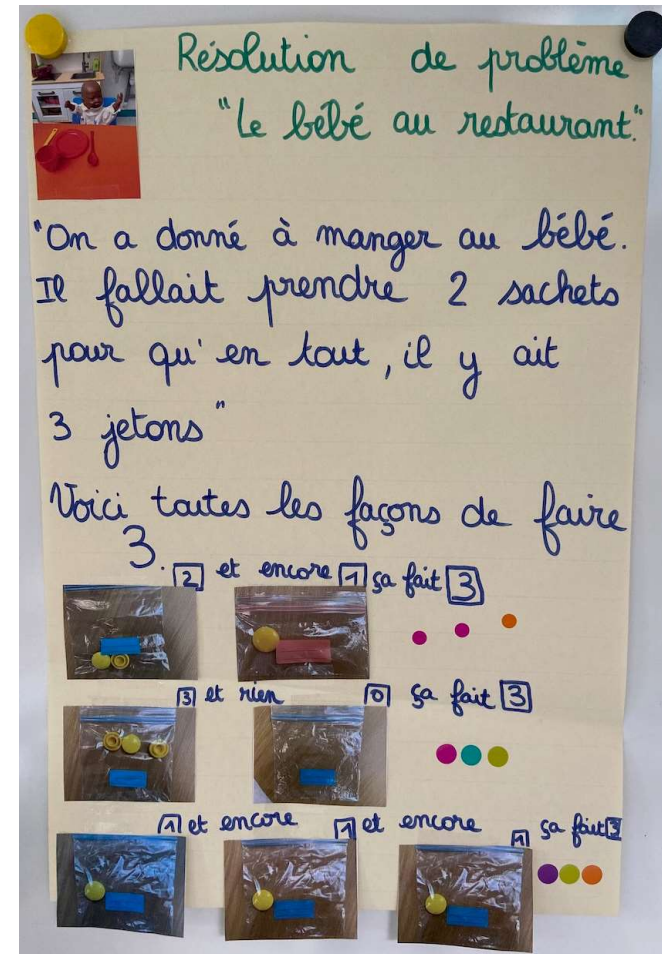 Résolution de problème
"Le bébé au restaurant"
"On a donné à manger au bébé.
Il fallait prendre 2 sachets
pour qu'en tout, il y ait
3 jetons"
Voici toutes les façons de faire
3.
2 et encore 1 ça fait 3
3 et rien 0 ça fait 3
1 et encore 1 et encore 1 ça fait 3